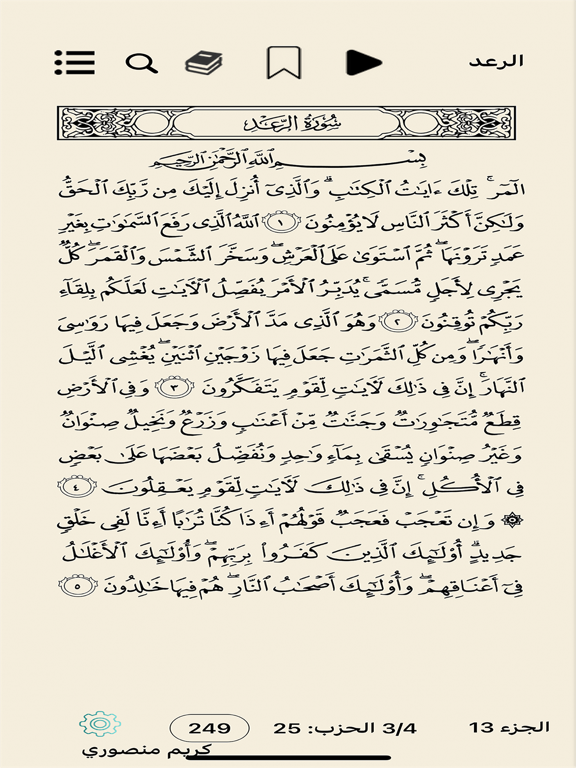 الرعد
سُورَةُ الرَّعۡدِ
بِسۡمِ ٱللَّهِ ٱلرَّحۡمَٰنِ ٱلرَّحِيمِ
الٓمٓرۚ تِلۡكَ ءَايَٰتُ ٱلۡكِتَٰبِۗ وَٱلَّذِيٓ أُنزِلَ إِلَيۡكَ مِن رَّبِّكَ ٱلۡحَقُّ
وَلَٰكِنَّ أَكۡثَرَ ٱلنَّاسِ لَا يُؤۡمِنُونَ ١ ٱللَّهُ ٱلَّذِي رَفَعَ ٱلسَّمَٰوَٰتِ بِغَيۡرِ
عَمَدٖ تَرَوۡنَهَاۖ ثُمَّ ٱسۡتَوَىٰ عَلَى ٱلۡعَرۡشِۖ وَسَخَّرَ ٱلشَّمۡسَ وَٱلۡقَمَرَۖ كُلّٞ
يَجۡرِي لِأَجَلٖ مُّسَمّٗىۚ يُدَبِّرُ ٱلۡأَمۡرَ يُفَصِّلُ ٱلۡأٓيَٰتِ لَعَلَّكُم بِلِقَآءِ
رَبِّكُمۡ تُوقِنُونَ ٢ وَهُوَ ٱلَّذِي مَدَّ ٱلۡأَرۡضَ وَجَعَلَ فِيهَا رَوَٰسِيَ
وَأَنۡهَٰرٗاۖ وَمِن كُلِّ ٱلثَّمَرَٰتِ جَعَلَ فِيهَا زَوۡجَيۡنِ ٱثۡنَيۡنِۖ يُغۡشِي ٱلَّيۡلَ
ٱلنَّهَارَۚ إِنَّ فِي ذَٰلِكَ لَأٓيَٰتٖ لِّقَوۡمٖ يَتَفَكَّرُونَ ٣ وَفِي ٱلۡأَرۡضِ
قِطَعٞ مُّتَجَٰوِرَٰتٞ وَجَنَّٰتٞ مِّنۡ أَعۡنَٰبٖ وَزَرۡعٞ وَنَخِيلٞ صِنۡوَانٞ
وَغَيۡرُ صِنۡوَانٖ يُسۡقَىٰ بِمَآءٖ وَٰحِدٖ وَنُفَضِّلُ بَعۡضَهَا عَلَىٰ بَعۡضٖ
فِي ٱلۡأُكُلِۚ إِنَّ فِي ذَٰلِكَ لَأٓيَٰتٖ لِّقَوۡمٖ يَعۡقِلُونَ ٤
۞ وَإِن تَعۡجَبۡ فَعَجَبٞ قَوۡلُهُمۡ أَءِذَا كُنَّا تُرَٰبًا أَءِنَّا لَفِي خَلۡقٖ
جَدِيدٍۗ أُوْلَٰٓئِكَ ٱلَّذِينَ كَفَرُواْ بِرَبِّهِمۡۖ وَأُوْلَٰٓئِكَ ٱلۡأَغۡلَٰلُ
فِيٓ أَعۡنَاقِهِمۡۖ وَأُوْلَٰٓئِكَ أَصۡحَٰبُ ٱلنَّارِۖ هُمۡ فِيهَا خَٰلِدُونَ ٥
الجزء 13
3/4 الحزب: 25
249
كريم منصوري